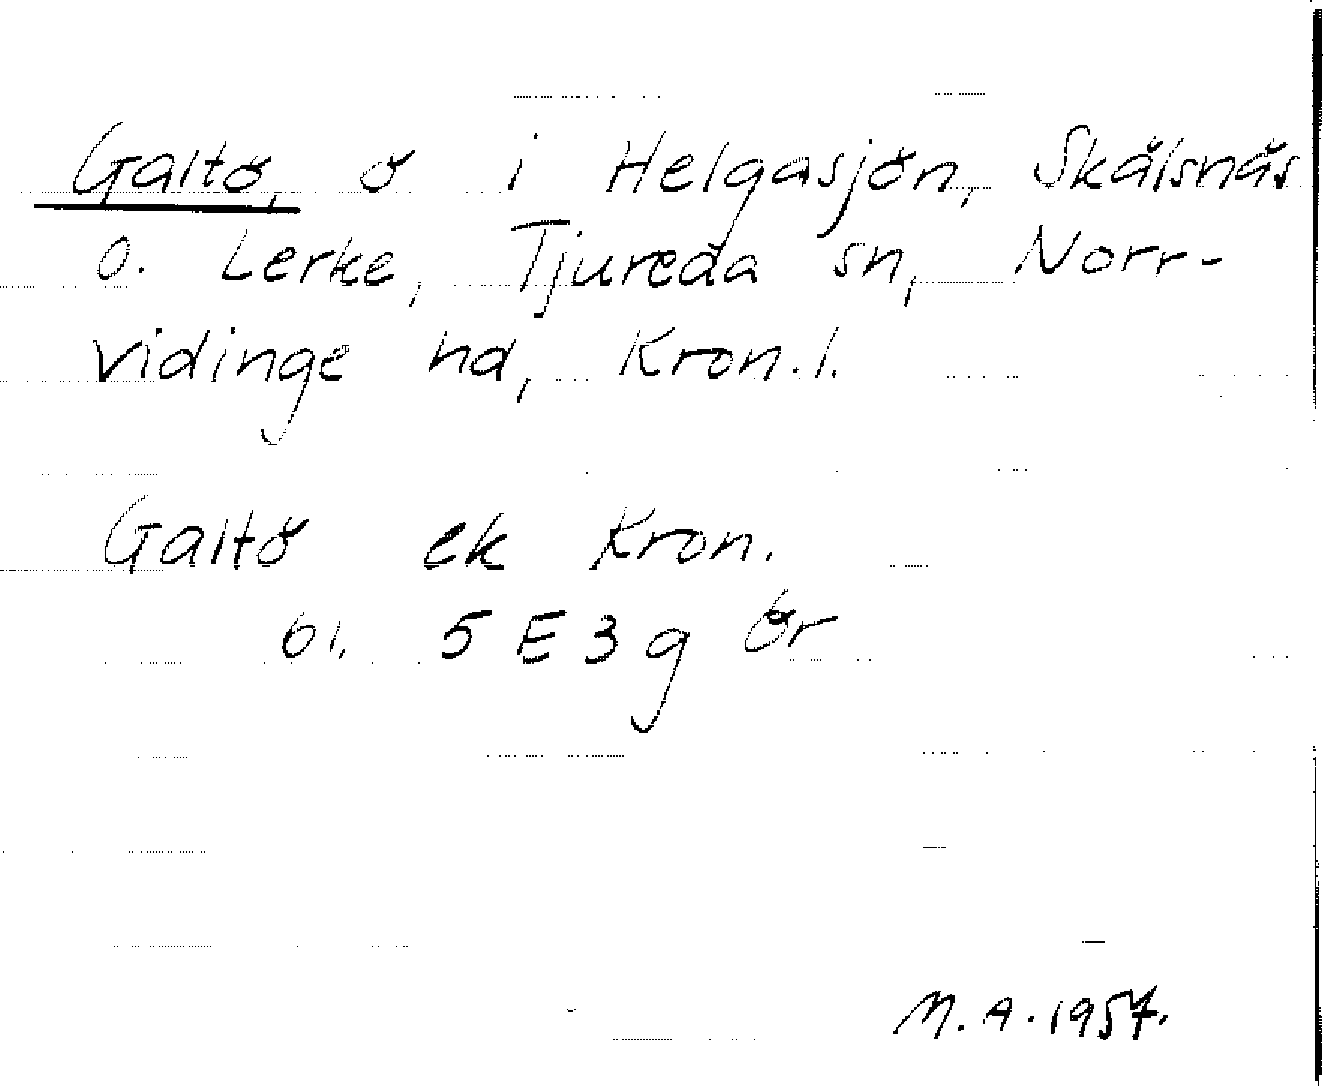 Galtö, ö i Helgasjön, Skälsnäs
o. Lerke, Tjureda sn, Norr-
vidinge hd, Kron. l.
Galtö ek Kron.
bl. 5 E 3 g Ör
M. A. 1957.